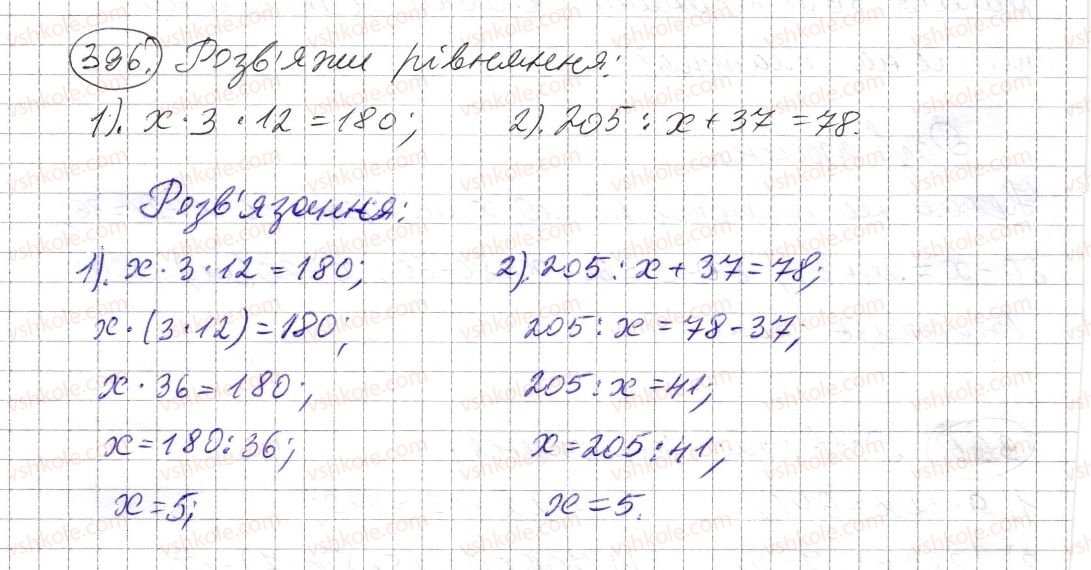 396. Розв'яжи рівняння:
1). x · 3 · 12 = 180; 2). 205 : x + 37 = 78.
Розв'язання:
1). x · 3 · 12 = 180; 2). 205 : x + 37 = 78;
x · (3 · 12) = 180; 205 : x = 78 - 37;
x · 36 = 180; 205 : x = 41;
x = 180 : 36; x = 205 : 41;
x = 5; x = 5.